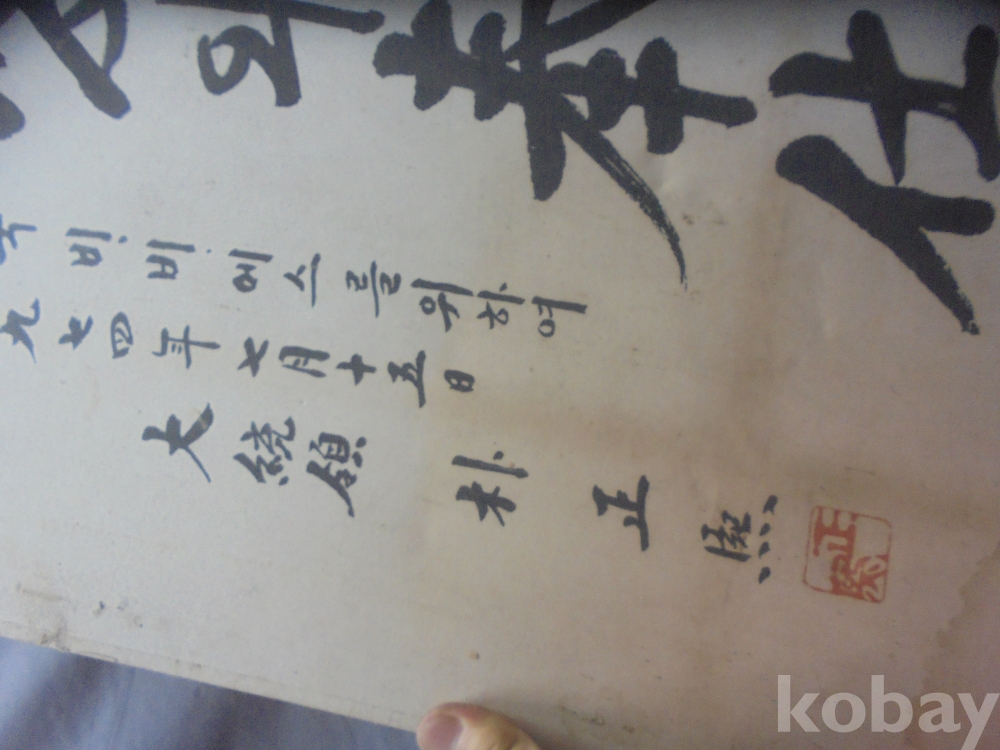 의 奉仕
국 비.비.에스를 위하여
九七四年七月十五日
大統領 朴正熙
kobay